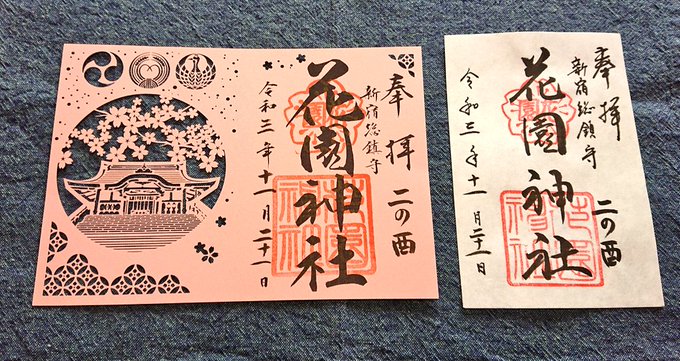 奉拝
二の酉
新宿総鎮守
花園神社
令和三年十一月二十一日
奉拝
二の酉
新宿総鎮守
花園神社
令和三年十一月二十一日